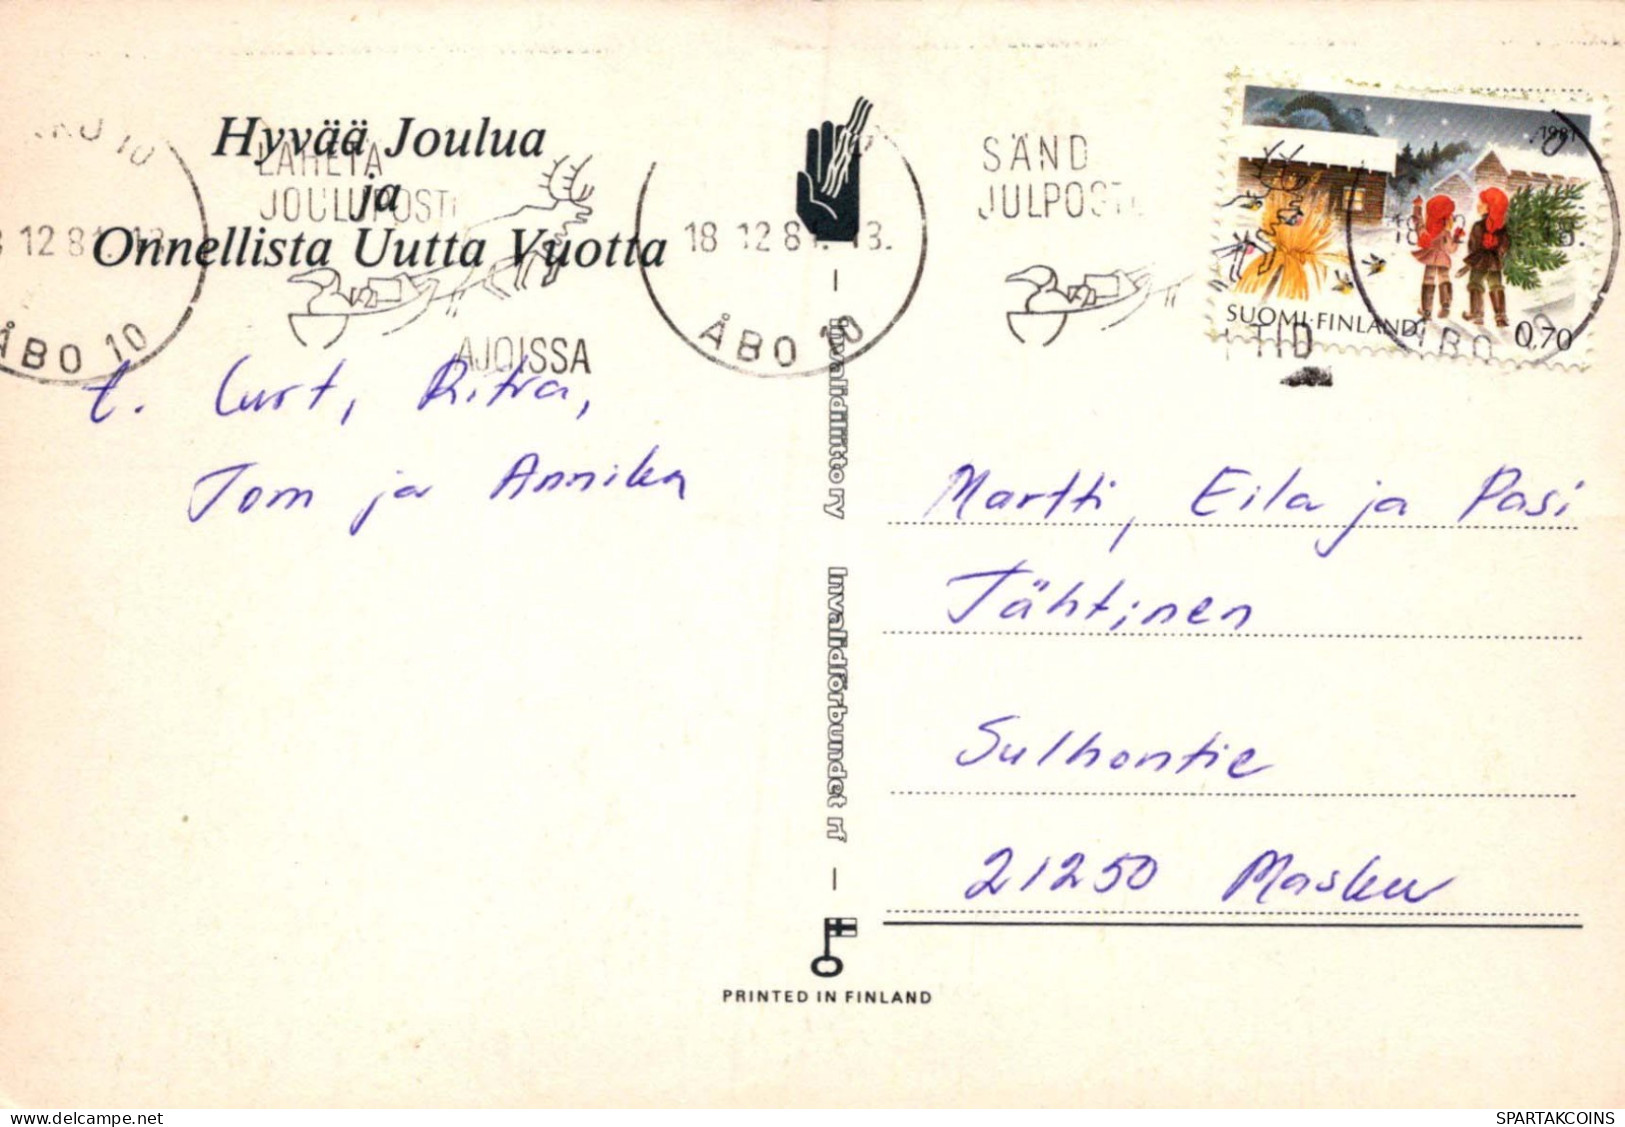 Hyvää Joulua
ja
Onnellista Uutta Vuotta
LÄHETÄ
JOULUPOSTI
AJOISSA
12 81
ÅBO 10
18 12 81 13.
ÅBO 10
SÄND
JULPOST
I TID
1981
SUOMI·FINLAND 0,70
t. Curt, Ritva,
Tom ja Annika
Invalidiliitto ry
Invalidförbundet rf
Martti, Eila ja Pasi
Tähtinen
Sulhontie
21250 Masku
PRINTED IN FINLAND
delcampe.net
SPARTAKCOINS